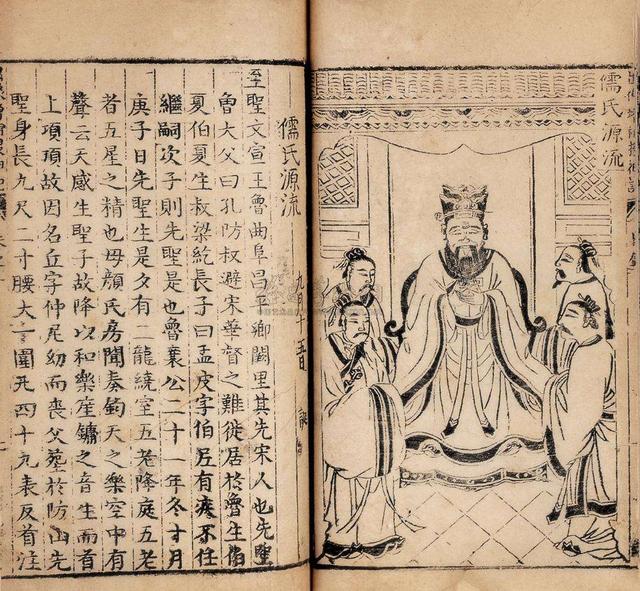 儒氏源流
儒氏源流
至聖文宣王魯曲阜昌平鄉闕里其先宋人也先聖
魯大父曰孔防叔避宋善督之難徙居於魯生伯
夏伯夏生叔梁紇長子曰孟皮字伯尼有疾不任
繼嗣次子則先聖是也魯襄公二十一年冬十月
庚子日先聖生是夕有二龍繞室五老降庭五老
者五星之精也母顏氏房聞奏鈞天之樂空中有
聲云天感生聖子故降以和樂笙鏞之音生而首
上項頂故因名丘字仲尼幼而喪父墓於防山先
聖身長九尺二寸腰大十圍凡四十九表反首洼